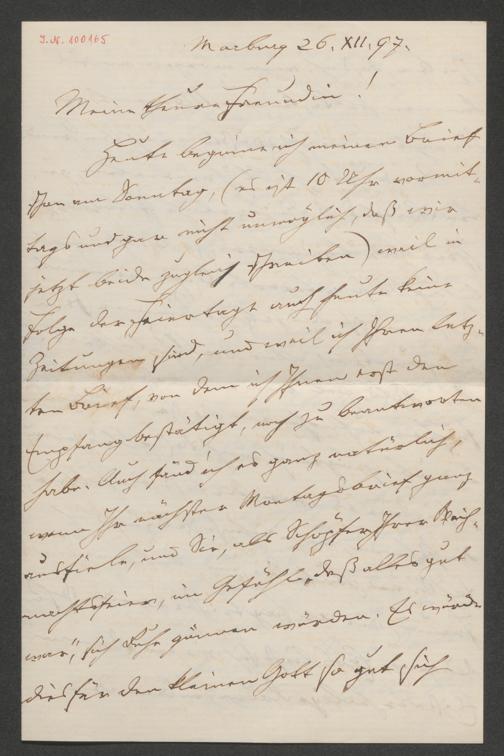 J.N. 100165
Marburg 26. XII. 97.
Meine theure Freundin!
Heute beginne ich meinen Brief
schon am Sonntag, (es ist 10 Uhr vormit-
tags und gar nicht unmöglich, daß wir
jetzt beide zugleich schreiben) weil in
Folge der Feiertage auch heute keine
Zeitungen sind, und weil ich Ihren letz-
ten Brief, von dem ich Ihnen erst den
Empfang bestätigt, noch zu beantworten
habe. Auch fänd' ich es ganz natürlich,
wenn Ihr nächster Montagsbrief ganz
ausfiele, und Sie, als Schöpfer Ihrer Weih-
nachtsfeier, im Gefühl „daß alles gut
war", sich Ruhe gönnen würden. Es würde
dies für den kleinen Gott so gut sich